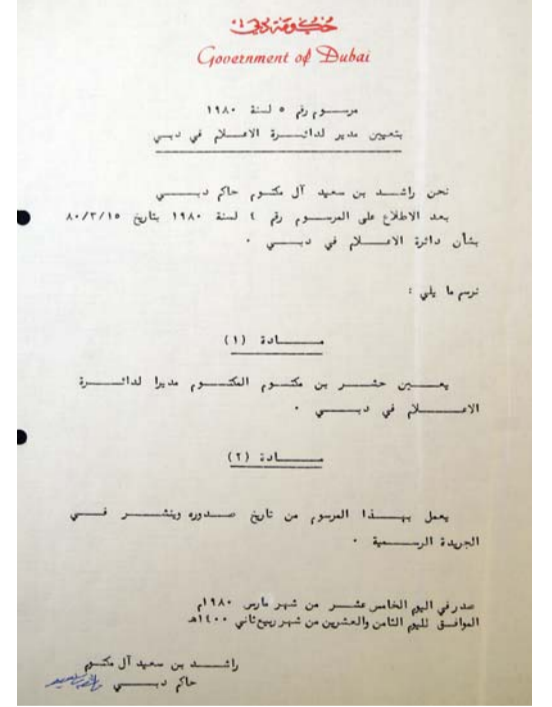 حكومة دبي
Government of Dubai
مرسوم رقم ٥ لسنة ١٩٨٠
بتعيين مدير لدائرة الاعلام في دبي
نحن راشد بن سعيد آل مكتوم حاكم دبي
بعد الاطلاع على المرسوم رقم ٤ لسنة ١٩٨٠ بتاريخ ٨٠/٣/١٥
بشأن دائرة الاعلام في دبي .
نرسم ما يلي :
مادة (١)
يعين حشر بن مكتوم المكتوم مديرا لدائرة
الاعلام في دبي .
مادة (٢)
يعمل بهذا المرسوم من تاريخ صدوره وينشر في
الجريدة الرسمية .
صدر في اليوم الخامس عشر من شهر مارس ١٩٨٠م
الموافق لليوم الثامن والعشرين من شهر ربيع ثاني ١٤٠٠هـ
راشد بن سعيد آل مكتوم
حاكم دبي